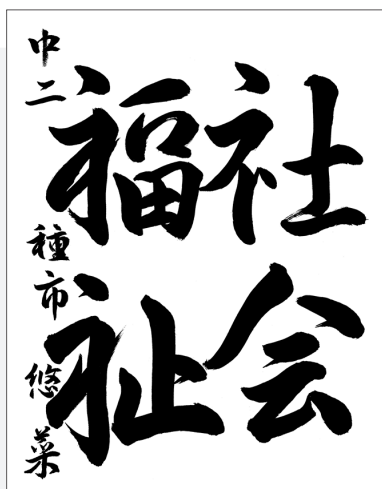 社会
福祉
中二 種市悠菜